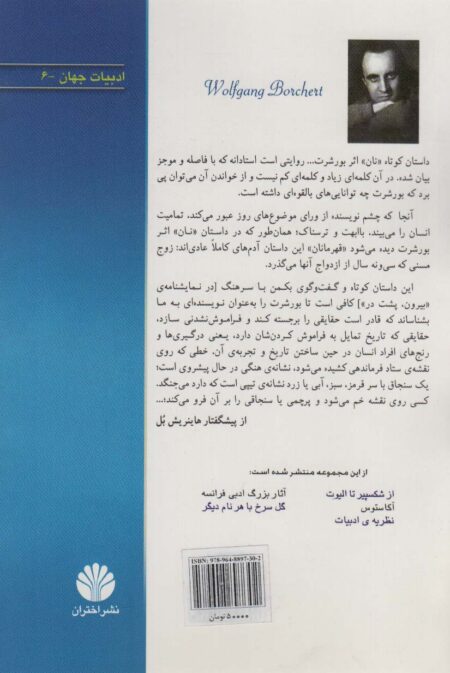 ادبیات جهان -۶
Wolfgang Borchert
داستان کوتاه «نان» اثر بورشرت... روایتی است استادانه که با فاصله و موجز
بیان شده. در آن کلمه‌ای زیاد و کلمه‌ای کم نیست و از خواندن آن می‌توان پی
برد که بورشرت چه توانایی‌های بالقوه‌ای داشته است.
آنجا که چشم نویسنده از ورای موضوع‌های روز عبور می‌کند، تمامیت
انسان را می‌بیند. باابهت و ترسناک؛ همان‌طور که در داستان «نان» اثر
بورشرت دیده می‌شود «قهرمانان» این داستان آدم‌های کاملاً عادی‌اند: زوج
مسنی که سی‌ونه سال از ازدواج آنها می‌گذرد.
این داستان کوتاه و گفت‌وگوی بکمن با سرهنگ [در نمایشنامه‌ی
«بیرون، پشت در»] کافی است تا بورشرت را به‌عنوان نویسنده‌ای به ما
بشناساند که قادر است حقایقی را برجسته کند و فراموش‌نشدنی سازد،
حقایقی که تاریخ تمایل به فراموش کردن‌شان دارد، یعنی درگیری‌ها و
رنج‌های افراد انسان در حین ساختن تاریخ و تجربه‌ی آن. خطی که روی
نقشه‌ی ستاد فرماندهی کشیده می‌شود، نشانه‌ی هنگی در حال پیشروی است؛
یک سنجاق با سر قرمز، سبز، آبی یا زرد نشانه‌ی تیپی است که دارد می‌جنگد.
کسی روی نقشه خم می‌شود و پرچمی یا سنجاقی را بر آن فرو می‌کند؛...
از پیشگفتار هاینریش بُل
از این مجموعه منتشر شده است:
از شکسپیر تا الیوت
آثار بزرگ ادبی فرانسه
آکاستوس
گل سرخ با هر نام دیگر
نظریه ی ادبیات
ISBN: 978-964-8897-30-2
۵۰۰۰۰ تومان
نشر اختران